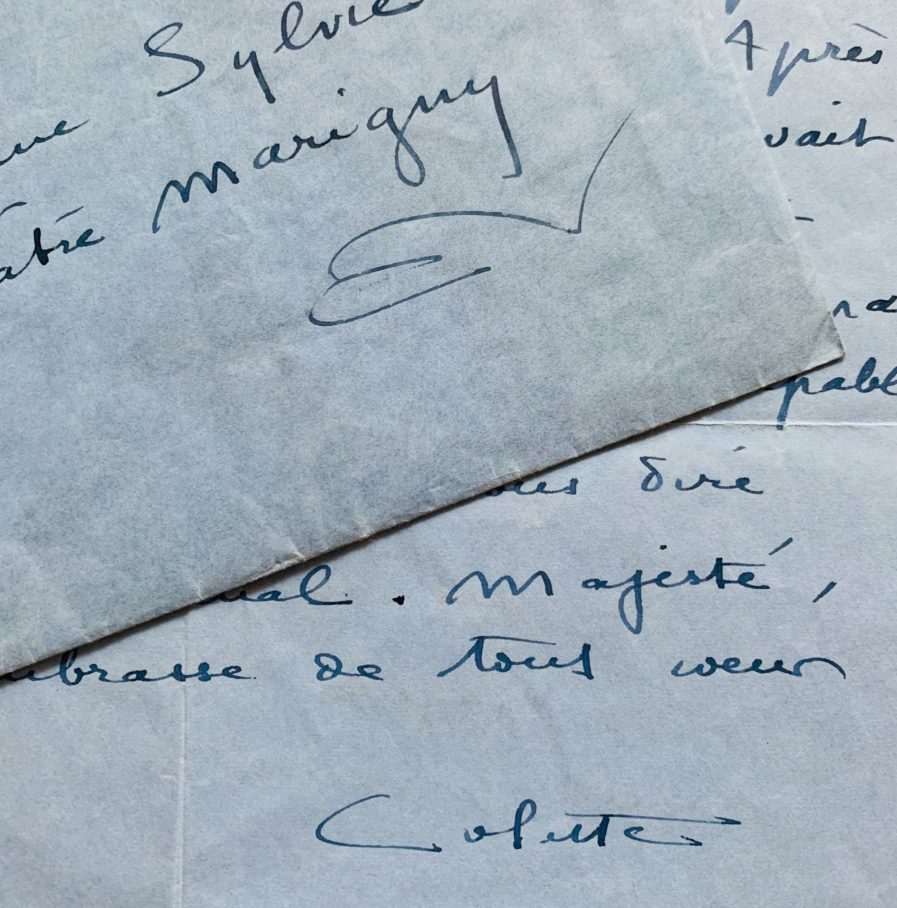 Sylvie
Marigny
Après
vait
pabl
ous dire
mal. Majesté,
mbrasse de tout coeur
Colette